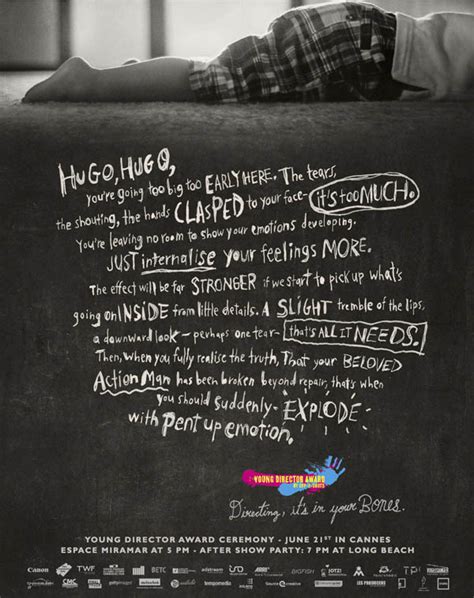 HUGO, HUGO,
you're going too big too EARLY HERE. The tears,
the shouting, the hands CLASPED to your face- it's too MUCH.
You're leaving no room to show your emotions developing.
JUST internalise your feelings MORE.
The effect will be far STRONGER if we start to pick up what's
going on INSIDE from little details. A SLIGHT tremble of the lips,
a downward look - perhaps one tear - that's ALL IT NEEDS.
Then, when you fully realise the truth, That your BELOVED
Action Man has been broken beyond repair, that's when
you should suddenly - EXPLODE -
with pent up emotion.
YOUNG DIRECTOR AWARD
Directing, it's in your BONES.
YOUNG DIRECTOR AWARD CEREMONY - JUNE 21ST IN CANNES
ESPACE MIRAMAR AT 5 PM - AFTER SHOW PARTY: 7 PM AT LONG BEACH
Canon TWF BETC adstream BIGFISH
CMC gettyimages tempomedia